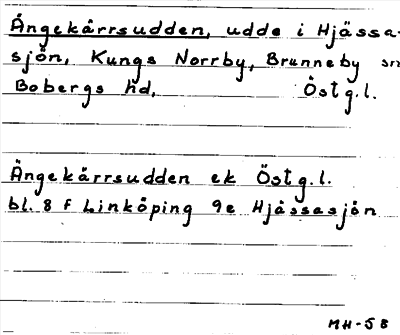 Ängekärrsudden, udde i Hjässa-
sjön, Kungs Norrby, Brunneby sn
Bobergs hd, Östg.l.
Ängekärrsudden ek Östg.l.
bl. 8 f Linköping 9e Hjässasjön
MH-58